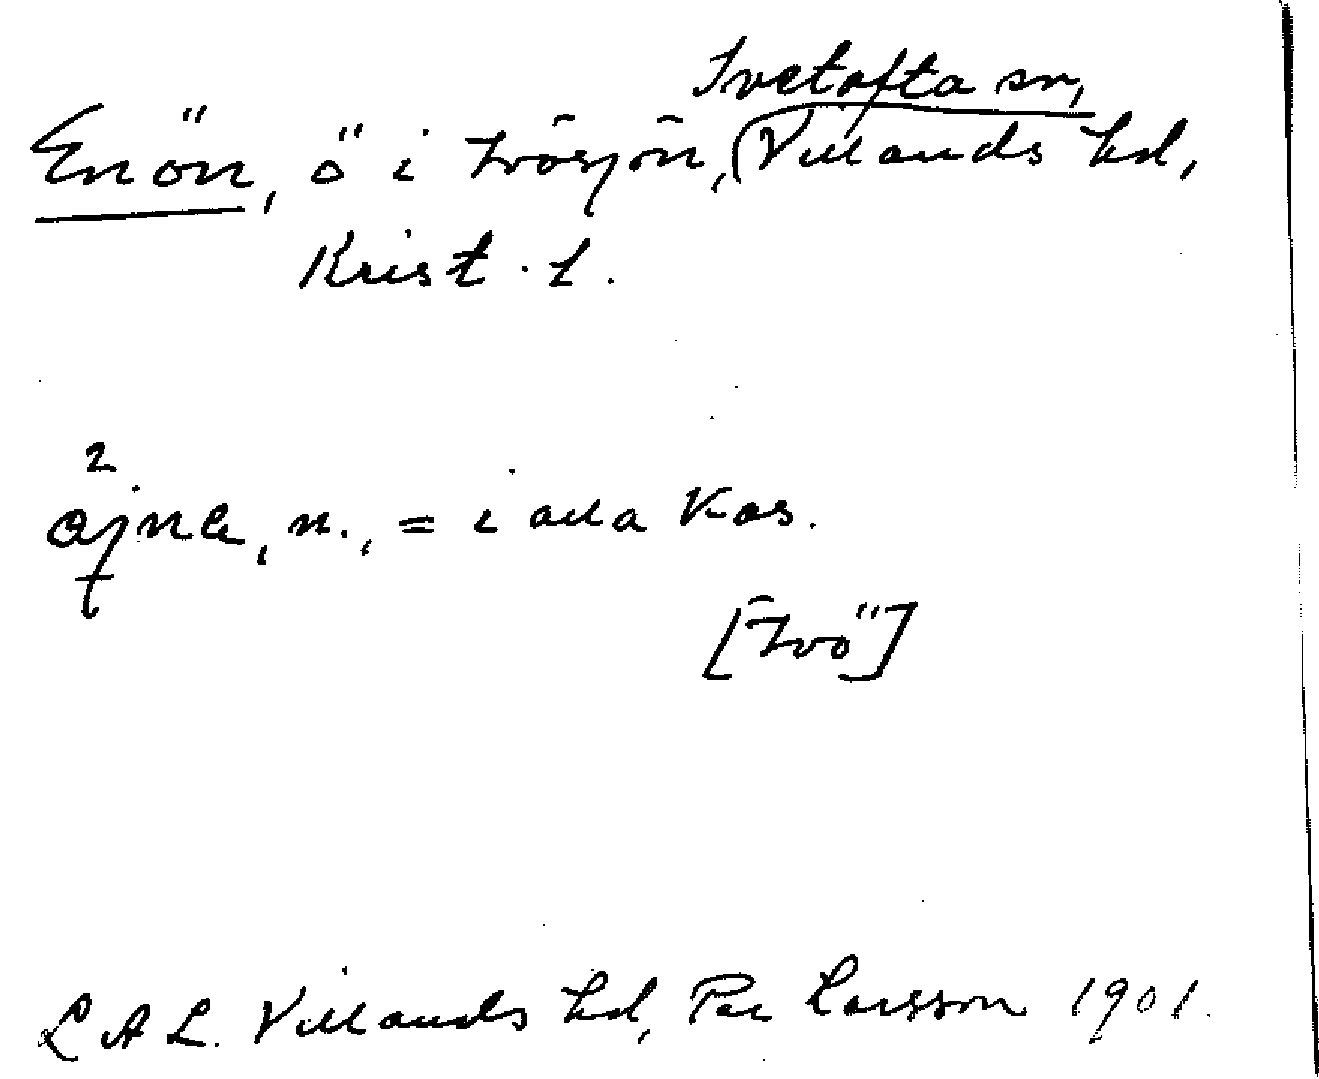 Ivetofta sn,
Enön, ö i Ivösjön, Villands hd,
Krist. l.
2
ajne, n., = i alla kas.
[Ivö]
LAL. Villands hd, Per Larsson 1901.